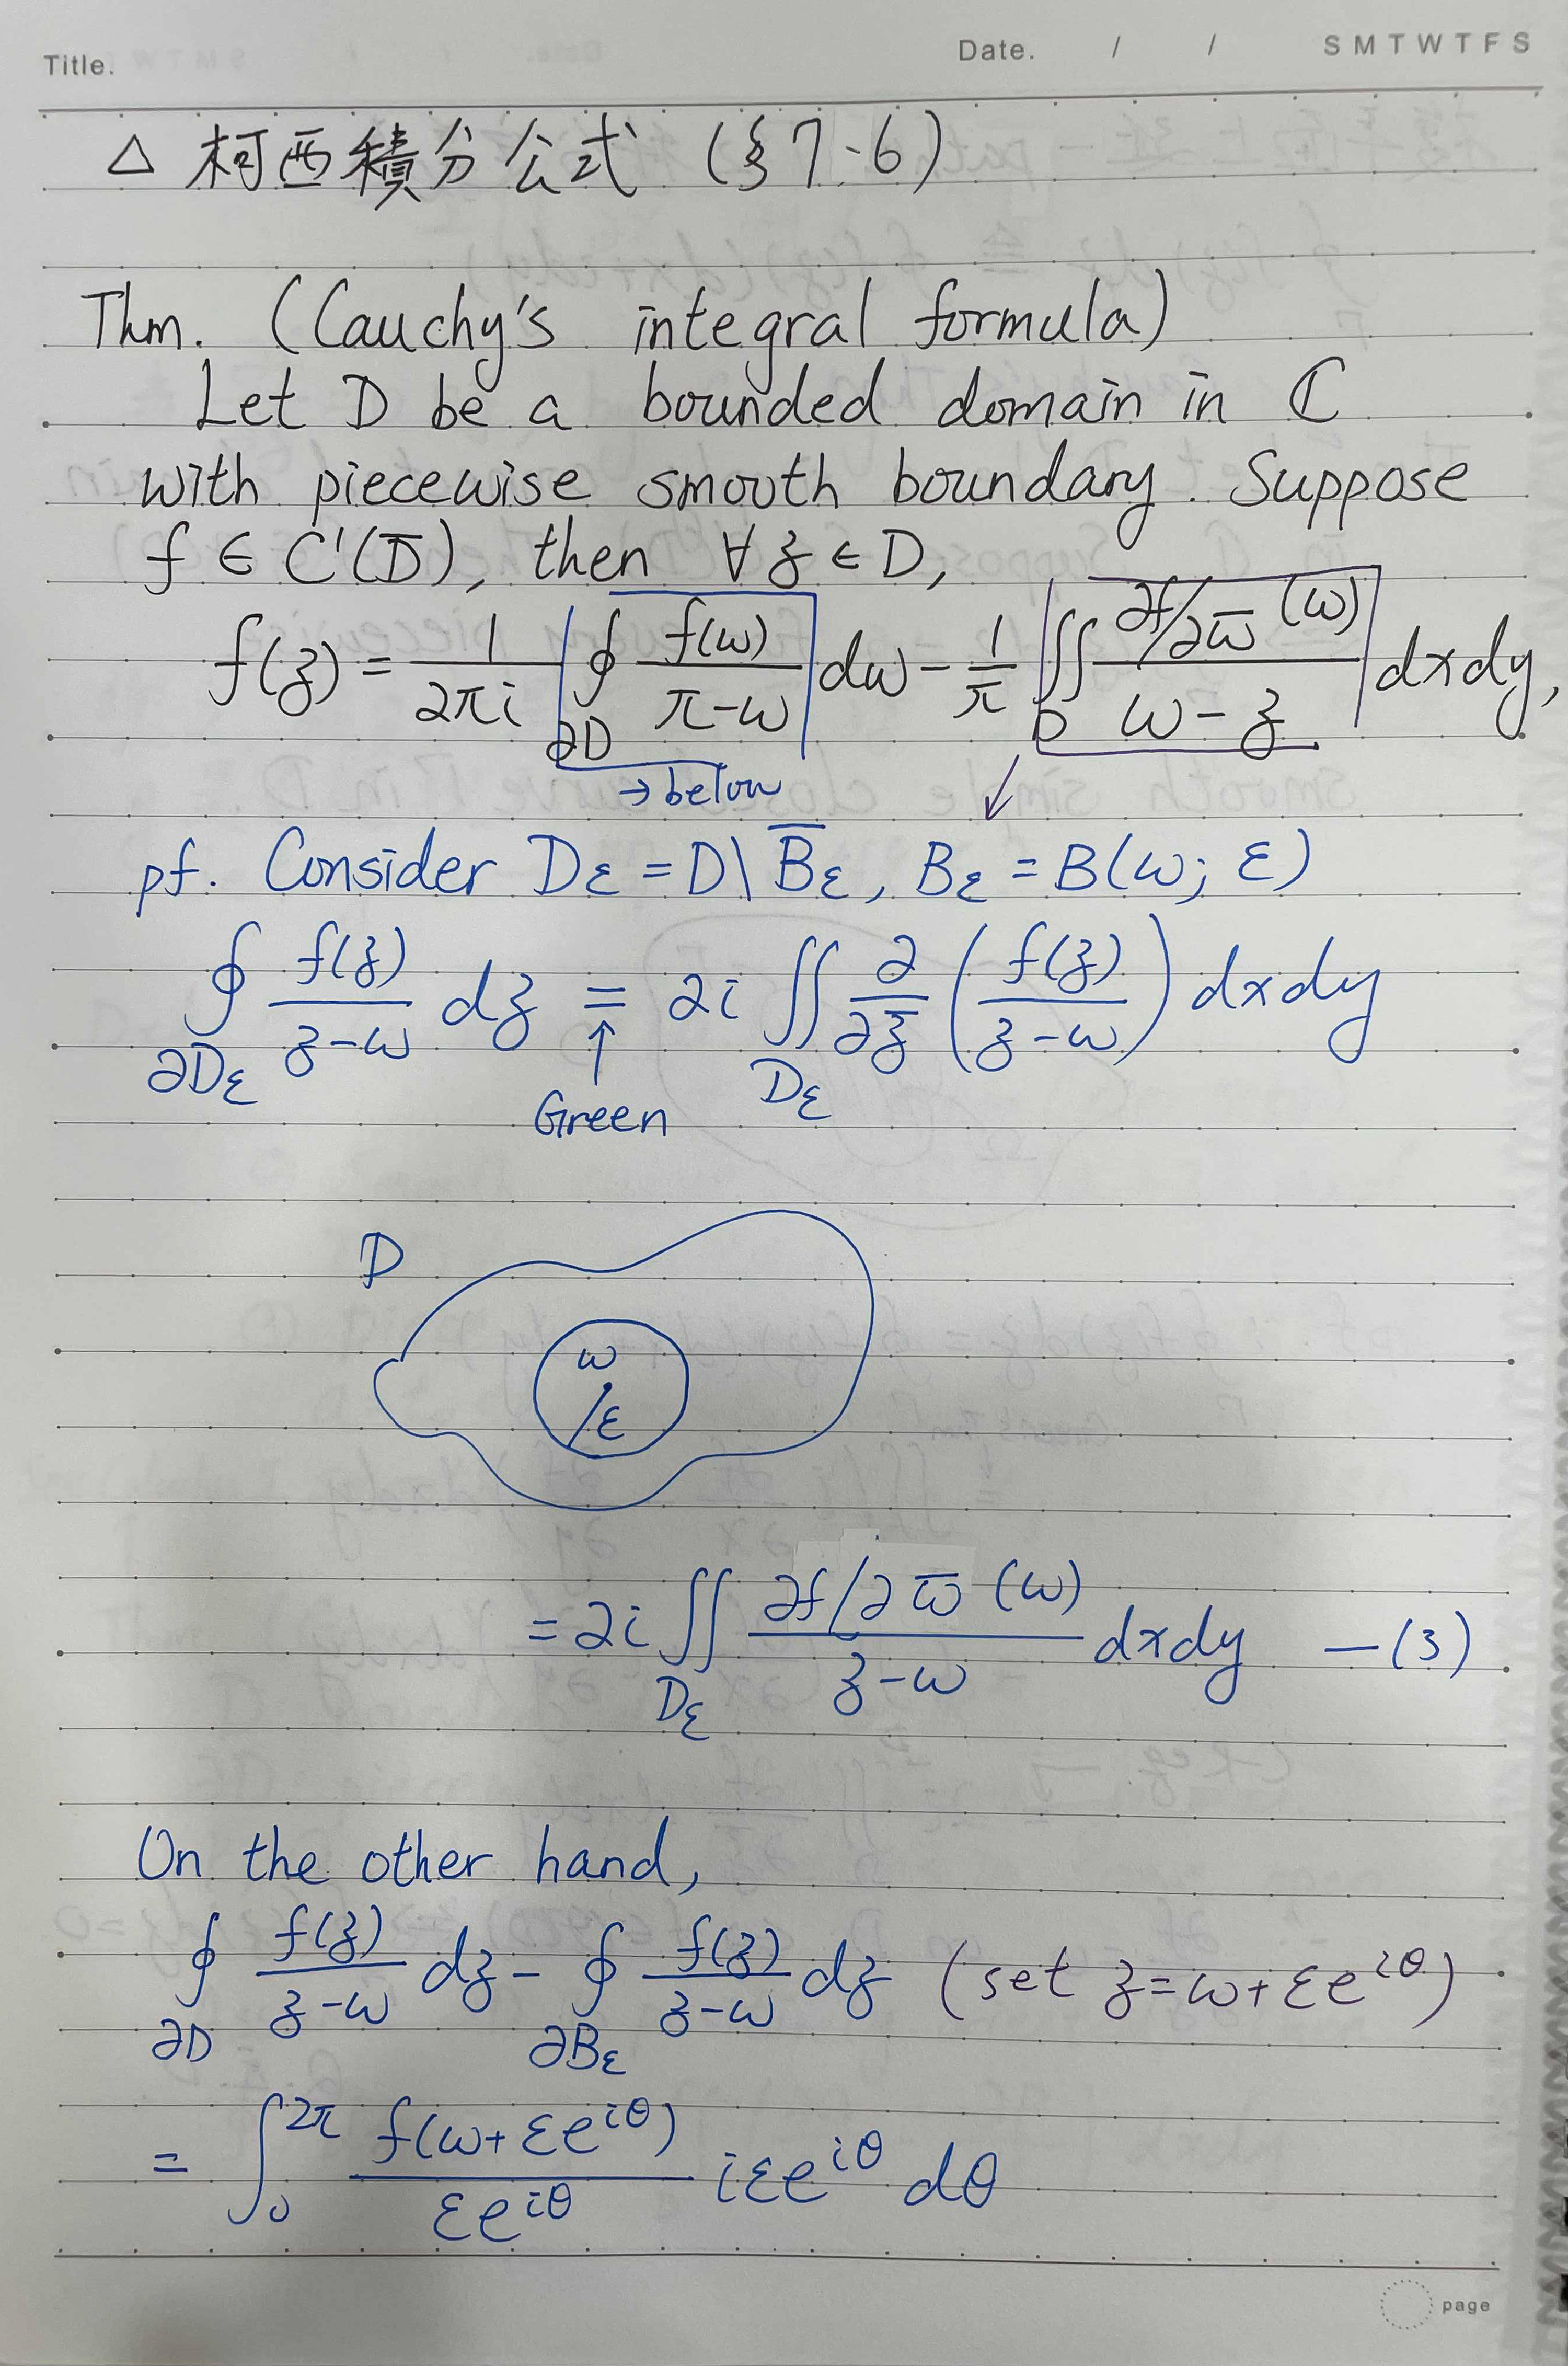 Title.
Date. / / S M T W T F S
△ 柯西積分公式 (§7-6)
Thm. (Cauchy's integral formula)
Let D be a bounded domain in ℂ
with piecewise smooth boundary. Suppose
f ∈ C¹(D̅), then ∀ z ∈ D,
f(z) = 1/(2πi) ∮_{∂D} f(ω)/(π-ω) dω - 1/π ∬_D (∂f/∂ω̅ (ω))/(ω-z) dxdy,
→ below ↙
pf. Consider D_ε = D \ B̅_ε, B_ε = B(ω; ε)
∮_{∂D_ε} f(z)/(z-ω) dz = 2i ∬_{D_ε} ∂/∂z̅ (f(z)/(z-ω)) dxdy
↑
Green
D
ω
ε
= 2i ∬_{D_ε} (∂f/∂ω̅ (ω))/(z-ω) dxdy —(3)
On the other hand,
∮_{∂D} f(z)/(z-ω) dz - ∮_{∂B_ε} f(z)/(z-ω) dz (set z=ω+εe^{iθ})
= ∫_0^{2π} f(ω+εe^{iθ})/(εe^{iθ}) iεe^{iθ} dθ
page